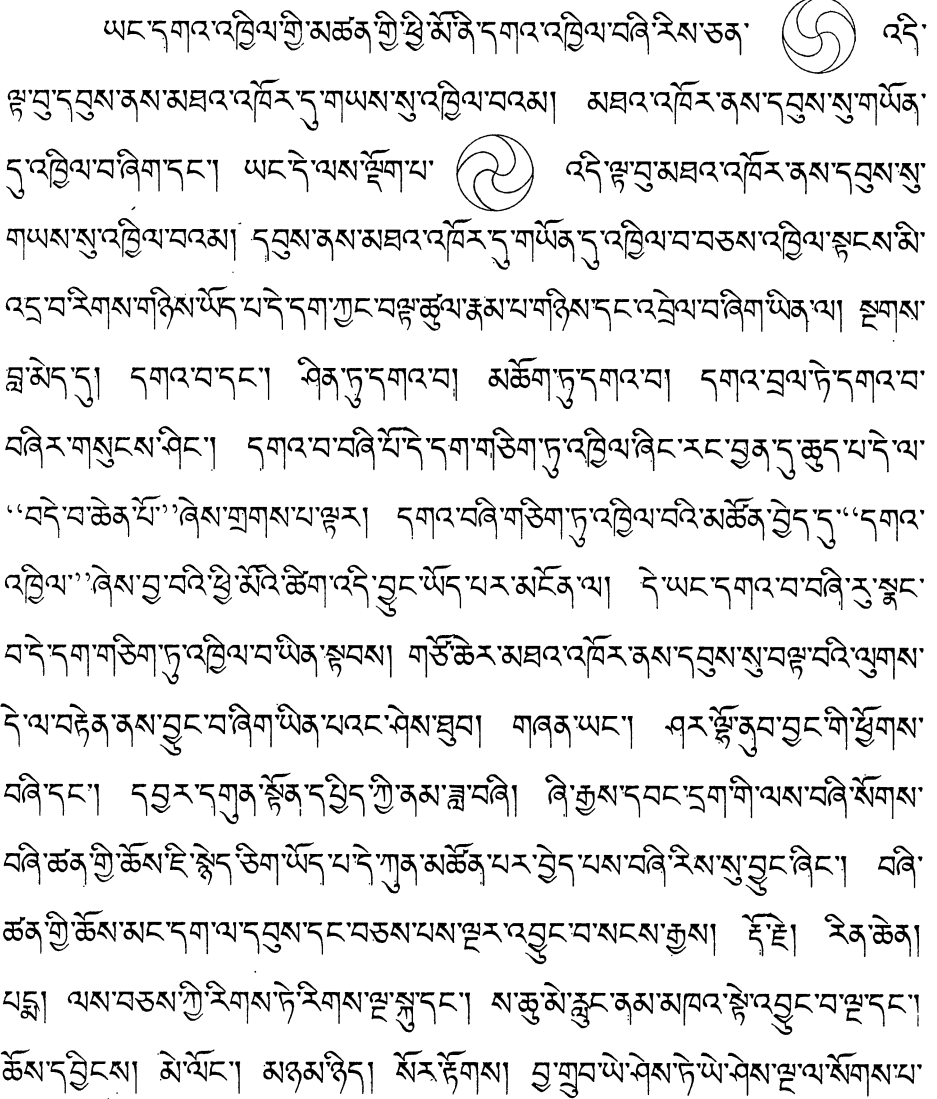 ཡང་དགའ་འཁྱིལ་གྱི་མཚན་གྱི་ཕྱི་མོ་ནི་དགའ་འཁྱིལ་བཞི་རིས་ཅན་ འདི་
ལྟ་བུ་དབུས་ནས་མཐའ་འཁོར་དུ་གཡས་སུ་འཁྱིལ་བའམ། མཐའ་འཁོར་ནས་དབུས་སུ་གཡོན་
དུ་འཁྱིལ་བ་ཞིག་དང་། ཡང་དེ་ལས་ལྡོག་པ་ འདི་ལྟ་བུ་མཐའ་འཁོར་ནས་དབུས་སུ་
གཡས་སུ་འཁྱིལ་བའམ། དབུས་ནས་མཐའ་འཁོར་དུ་གཡོན་དུ་འཁྱིལ་བ་བཅས་འཁྱིལ་སྟངས་མི་
འདྲ་བ་རིགས་གཉིས་ཡོད་པ་དེ་དག་ཀྱང་བལྟ་ཚུལ་རྣམ་པ་གཉིས་དང་འབྲེལ་བ་ཞིག་ཡིན་ལ། སྔགས་
བླ་མེད་དུ། དགའ་བ་དང་། ཤིན་ཏུ་དགའ་བ། མཆོག་ཏུ་དགའ་བ། དགའ་བྲལ་ཏེ་དགའ་བ་
བཞིར་གསུངས་ཤིང་། དགའ་བ་བཞི་པོ་དེ་དག་གཅིག་ཏུ་འཁྱིལ་ཞིང་རང་བྱན་དུ་ཆུད་པ་དེ་ལ་
“བདེ་བ་ཆེན་པོ་”ཞེས་གྲགས་པ་ལྟར། དགའ་བཞི་གཅིག་ཏུ་འཁྱིལ་བའི་མཚོན་བྱེད་དུ་“དགའ་
འཁྱིལ་”ཞེས་བྱ་བའི་ཕྱི་མོའི་ཚིག་འདི་བྱུང་ཡོད་པར་མངོན་ལ། དེ་ཡང་དགའ་བ་བཞི་རུ་སྣང་
བ་དེ་དག་གཅིག་ཏུ་འཁྱིལ་བ་ཡིན་སྟབས། གཙོ་ཆེར་མཐའ་འཁོར་ནས་དབུས་སུ་བལྟ་བའི་ལུགས་
དེ་ལ་བརྟེན་ནས་བྱུང་བ་ཞིག་ཡིན་པའང་ཤེས་ཐུབ། གཞན་ཡང་། ཤར་ལྷོ་ནུབ་བྱང་གི་ཕྱོགས་
བཞི་དང་། དབྱར་དགུན་སྟོན་དཔྱིད་ཀྱི་ནམ་ཟླ་བཞི། ཞི་རྒྱས་དབང་དྲག་གི་ལས་བཞི་སོགས་
བཞི་ཚན་གྱི་ཆོས་ཇི་སྙེད་ཅིག་ཡོད་པ་དེ་ཀུན་མཚོན་པར་བྱེད་པས་བཞི་རིས་སུ་བྱུང་ཞིང་། བཞི་
ཚན་གྱི་ཆོས་མང་དག་ལ་དབུས་དང་བཅས་པས་ལྔར་འབྱུང་བ་སངས་རྒྱས། རྡོ་རྗེ། རིན་ཆེན།
པདྨ། ལས་བཅས་ཀྱི་རིགས་ཏེ་རིགས་ལྔ་སྐུ་དང་། ས་ཆུ་མེ་རླུང་ནམ་མཁའ་སྟེ་འབྱུང་བ་ལྔ་དང་།
ཆོས་དབྱིངས། མེ་ལོང་། མཉམ་ཉིད། སོར་རྟོགས། བྱ་གྲུབ་ཡེ་ཤེས་ཏེ་ཡེ་ཤེས་ལྔ་ལ་སོགས་པ་